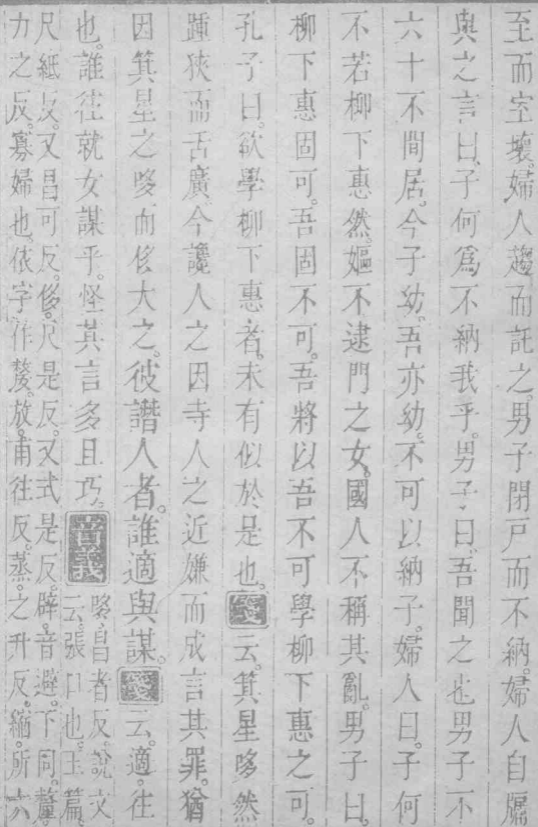 至而室壞。婦人趨而託之。男子閉戶而不納。婦人自牖
與之言曰、子何爲不納我乎。男子曰、吾聞之也男子不
六十不閒居。今子幼、吾亦幼。不可以納子。婦人曰。子何
不若柳下惠然。嫗不逮門之女。國人不稱其亂。男子曰、
柳下惠固可。吾固不可。吾將以吾不可學柳下惠之可。
孔子曰。欲學柳下惠者。未有似於是也。箋云。箕星哆然
踵狹而舌廣今讒人之因寺人之近嫌而成言其罪。猶
因箕星之哆而侈大之。彼譖人者。誰適與謀。箋云。適。往
也。誰往就女謀乎。怪其言多且巧。音義哆昌者反。說文
云。張口也。玉篇
尺紙反。又昌可反。侈。尺是反。又式是反。辟。音避。下同。釐。
力之反。寡婦也。依字作嫠。放。甫往反。蒸。之升反。縮。所六